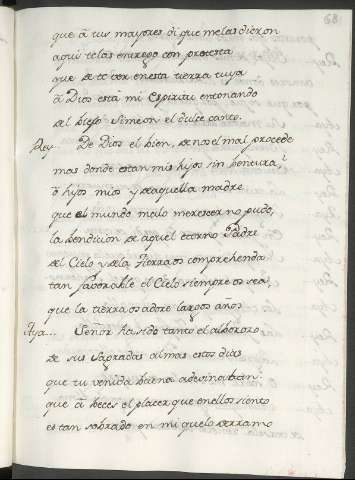 68
que à tus mayores di que melas dieron
aqui telas entrego con protesta
que de te con enesta tierra tuya
à Dios està mi espiritu entonando
del biejo Simeon el dulce canto.
Rey... De Dios el bien, de nos el mal procede
mas donde estan mis hijos sin bentura?
ò hijos mios y de aquella madre
que el mundo malo merescer no pudo,
la bendicion de aquel eterno Padre
del Cielo y dela Tierra os comprehenda
tan faborable el Cielo siempre os sea,
que la tierra os adore largos años
Aya... Señor ha sido tanto el alboroço
de sus sagradas almas estos dias
que tu venida buena adevinaban:
que à beces el placer que enellos siento
es tan sobrado en mi quelo derramo